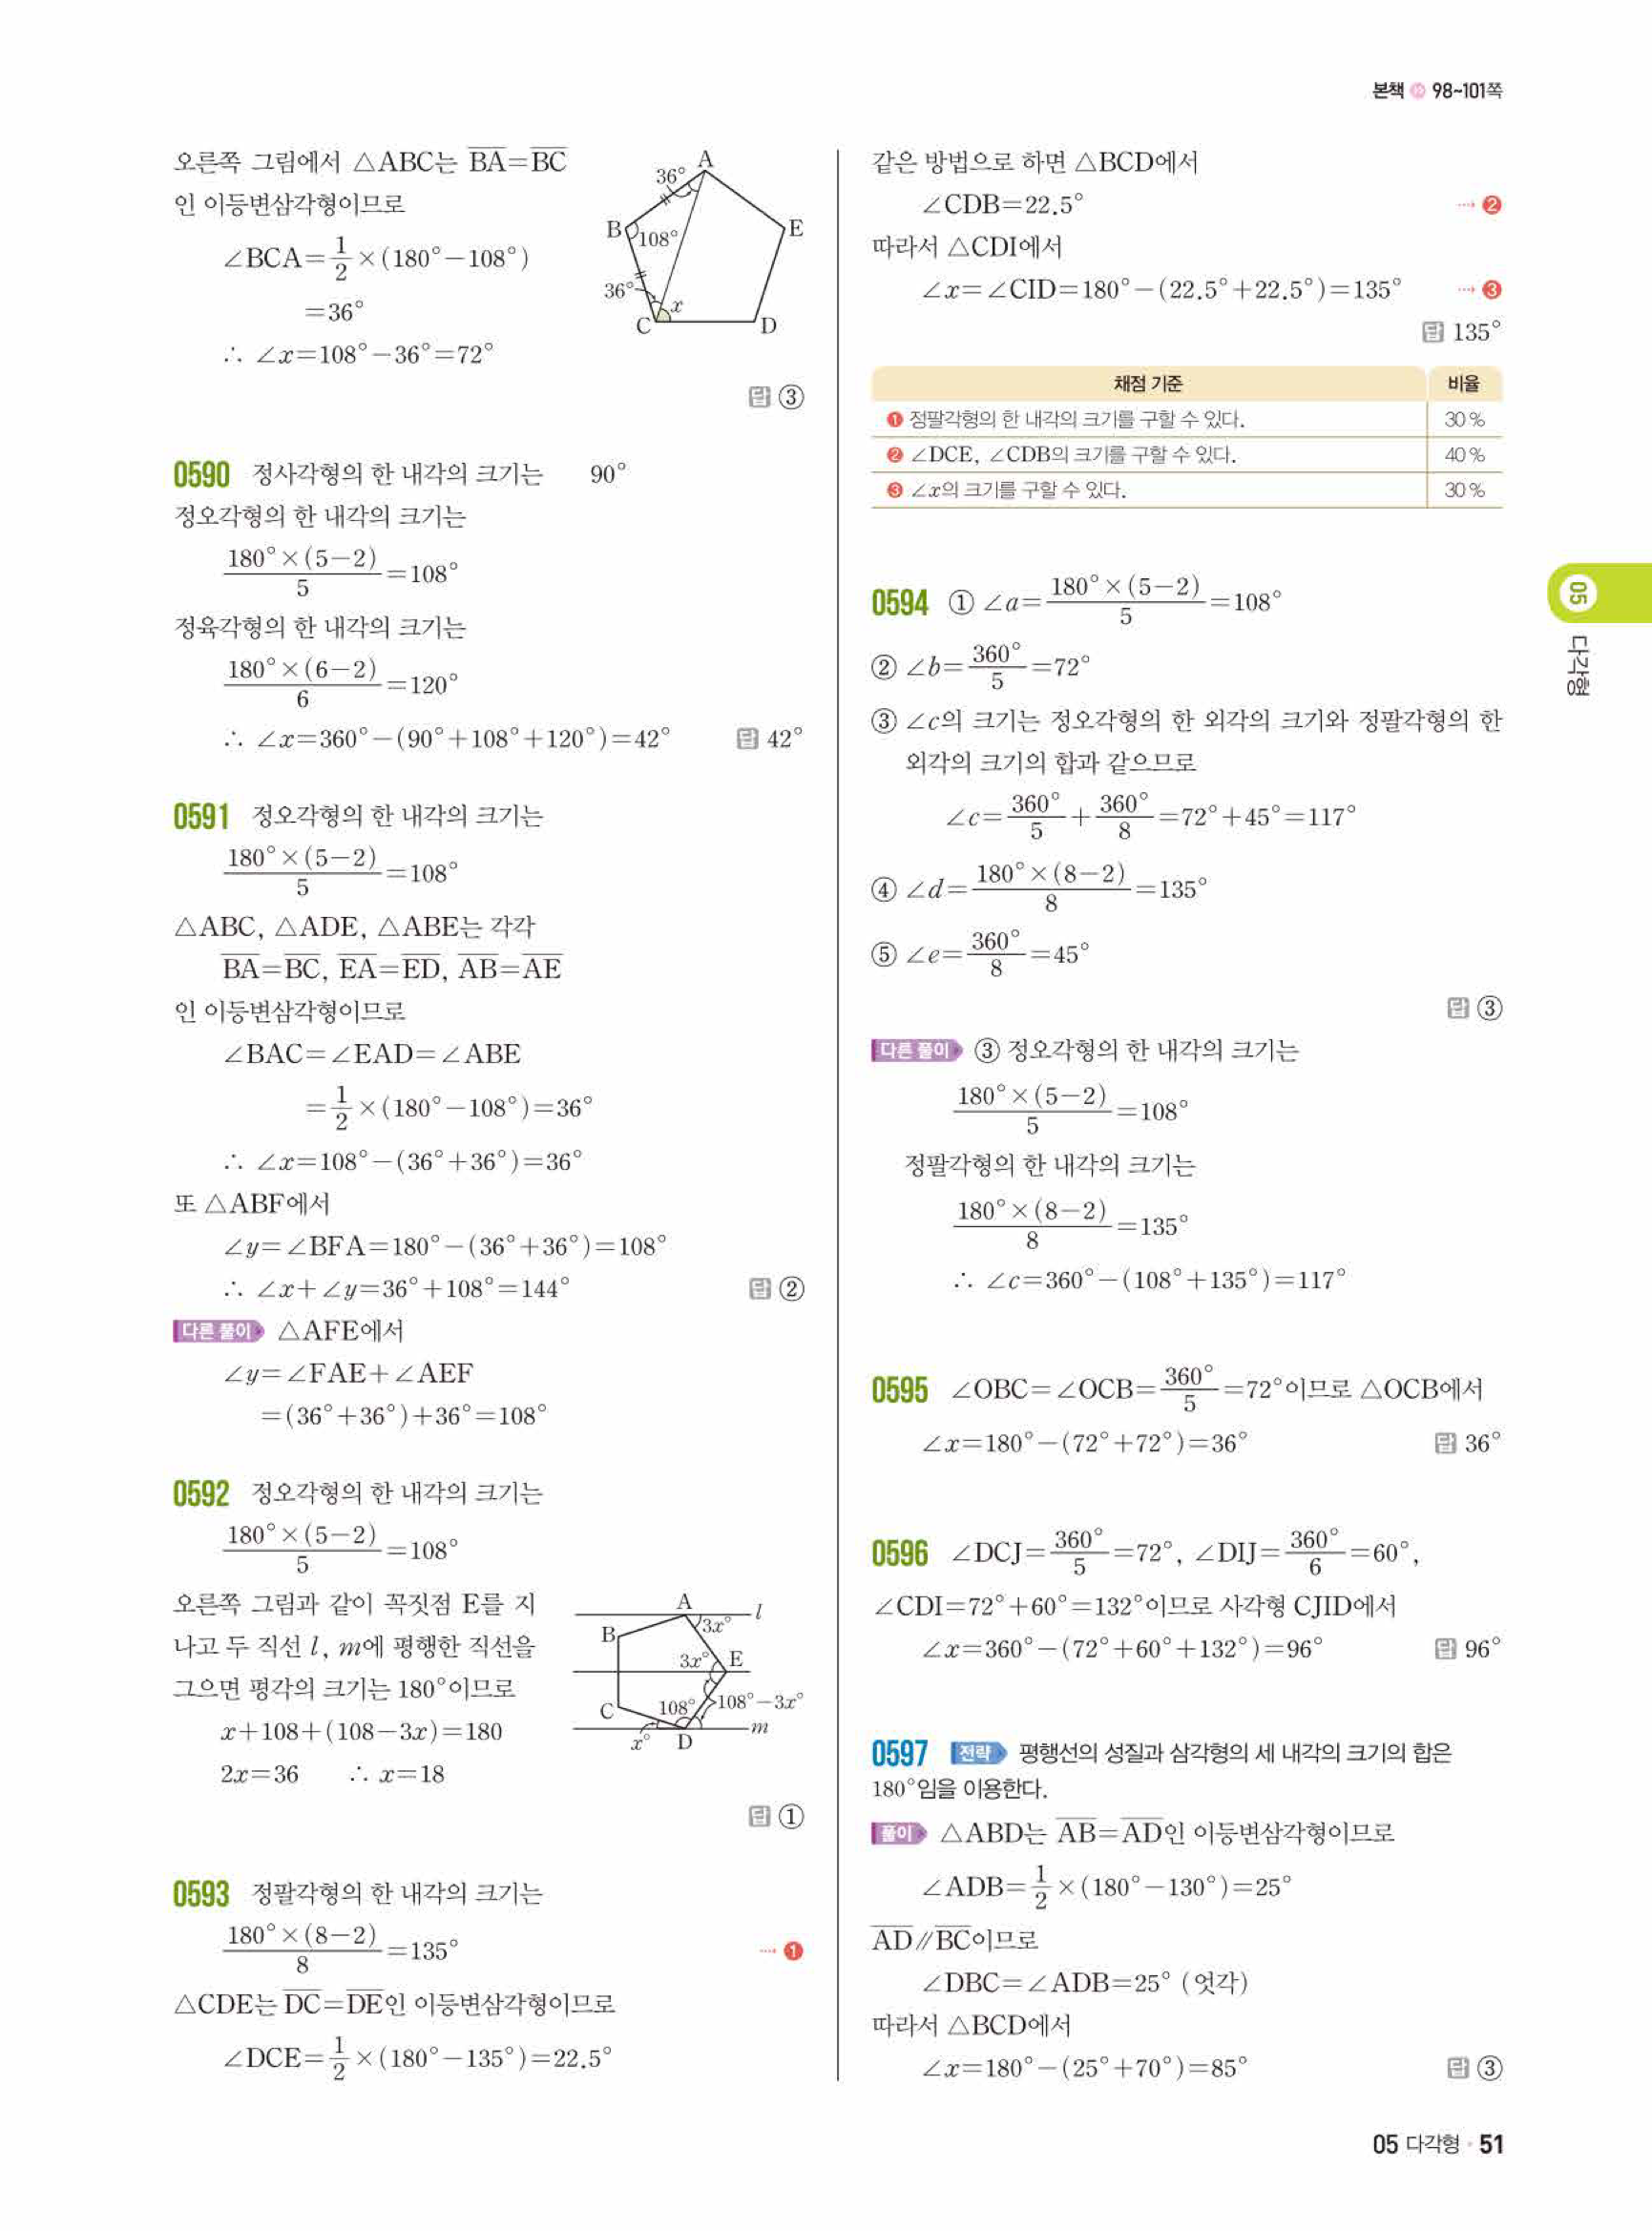 본책 98~101쪽
오른쪽 그림에서 △ABC는 BA=BC
인 이등변삼각형이므로
∠BCA=1/2×(180°-108°)
=36°
∴ ∠x=108°-36°=72°
A
36°
B
108°
E
36°
x
C
D
답 ③
0590 정사각형의 한 내각의 크기는 90°
정오각형의 한 내각의 크기는
180°×(5-2)/5=108°
정육각형의 한 내각의 크기는
180°×(6-2)/6=120°
∴ ∠x=360°-(90°+108°+120°)=42° 답 42°
0591 정오각형의 한 내각의 크기는
180°×(5-2)/5=108°
△ABC, △ADE, △ABE는 각각
BA=BC, EA=ED, AB=AE
인 이등변삼각형이므로
∠BAC=∠EAD=∠ABE
=1/2×(180°-108°)=36°
∴ ∠x=108°-(36°+36°)=36°
또 △ABF에서
∠y=∠BFA=180°-(36°+36°)=108°
∴ ∠x+∠y=36°+108°=144° 답 ②
다른 풀이 △AFE에서
∠y=∠FAE+∠AEF
=(36°+36°)+36°=108°
0592 정오각형의 한 내각의 크기는
180°×(5-2)/5=108°
오른쪽 그림과 같이 꼭짓점 E를 지
나고 두 직선 l, m에 평행한 직선을
그으면 평각의 크기는 180°이므로
x+108+(108-3x)=180
2x=36 ∴ x=18
A
l
B
3x°
3x°
E
C
108°
108°-3x°
m
x°
D
답 ①
0593 정팔각형의 한 내각의 크기는
180°×(8-2)/8=135° ❶
△CDE는 DC=DE인 이등변삼각형이므로
∠DCE=1/2×(180°-135°)=22.5°
같은 방법으로 하면 △BCD에서
∠CDB=22.5° ❷
따라서 △CDI에서
∠x=∠CID=180°-(22.5°+22.5°)=135° ❸
답 135°
채점 기준 비율
❶ 정팔각형의 한 내각의 크기를 구할 수 있다. 30 %
❷ ∠DCE, ∠CDB의 크기를 구할 수 있다. 40 %
❸ ∠x의 크기를 구할 수 있다. 30 %
0594 ① ∠a=180°×(5-2)/5=108°
② ∠b=360°/5=72°
③ ∠c의 크기는 정오각형의 한 외각의 크기와 정팔각형의 한
외각의 크기의 합과 같으므로
∠c=360°/5+360°/8=72°+45°=117°
④ ∠d=180°×(8-2)/8=135°
⑤ ∠e=360°/8=45°
답 ③
다른 풀이 ③ 정오각형의 한 내각의 크기는
180°×(5-2)/5=108°
정팔각형의 한 내각의 크기는
180°×(8-2)/8=135°
∴ ∠c=360°-(108°+135°)=117°
0595 ∠OBC=∠OCB=360°/5=72°이므로 △OCB에서
∠x=180°-(72°+72°)=36° 답 36°
0596 ∠DCJ=360°/5=72°, ∠DIJ=360°/6=60°,
∠CDI=72°+60°=132°이므로 사각형 CJID에서
∠x=360°-(72°+60°+132°)=96° 답 96°
0597 전략 평행선의 성질과 삼각형의 세 내각의 크기의 합은
180°임을 이용한다.
풀이 △ABD는 AB=AD인 이등변삼각형이므로
∠ADB=1/2×(180°-130°)=25°
AD∥BC이므로
∠DBC=∠ADB=25° (엇각)
따라서 △BCD에서
∠x=180°-(25°+70°)=85° 답 ③
05
다각형
05 다각형 51